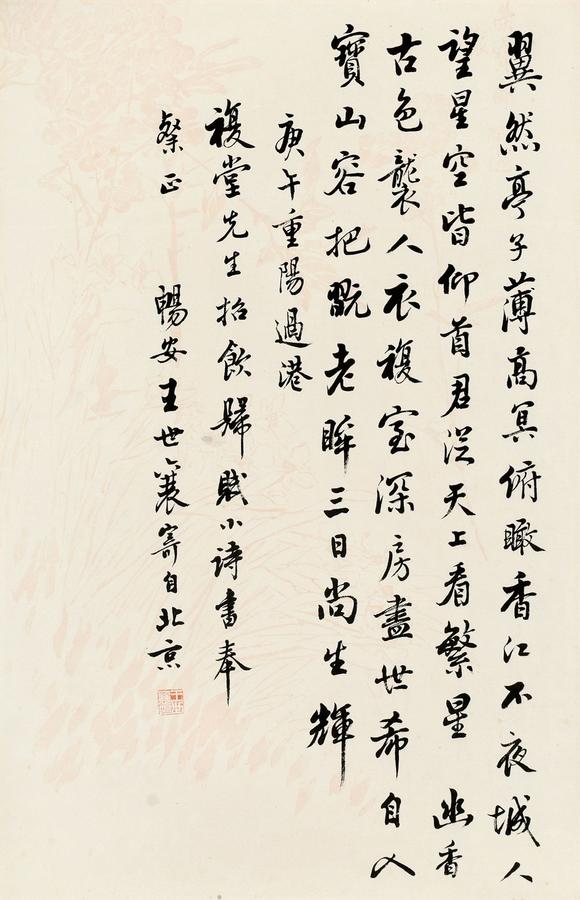 翼然亭子薄高冥俯瞰香江不夜城人
望星空皆仰首君從天上看繁星 幽香
古色襲人衣複室深房盡世希自入
寶山容把翫老眸三日尚生輝
庚午重陽過港
復堂先生招飲歸賦小詩書奉
粲正 暢安王世襄寄自北京